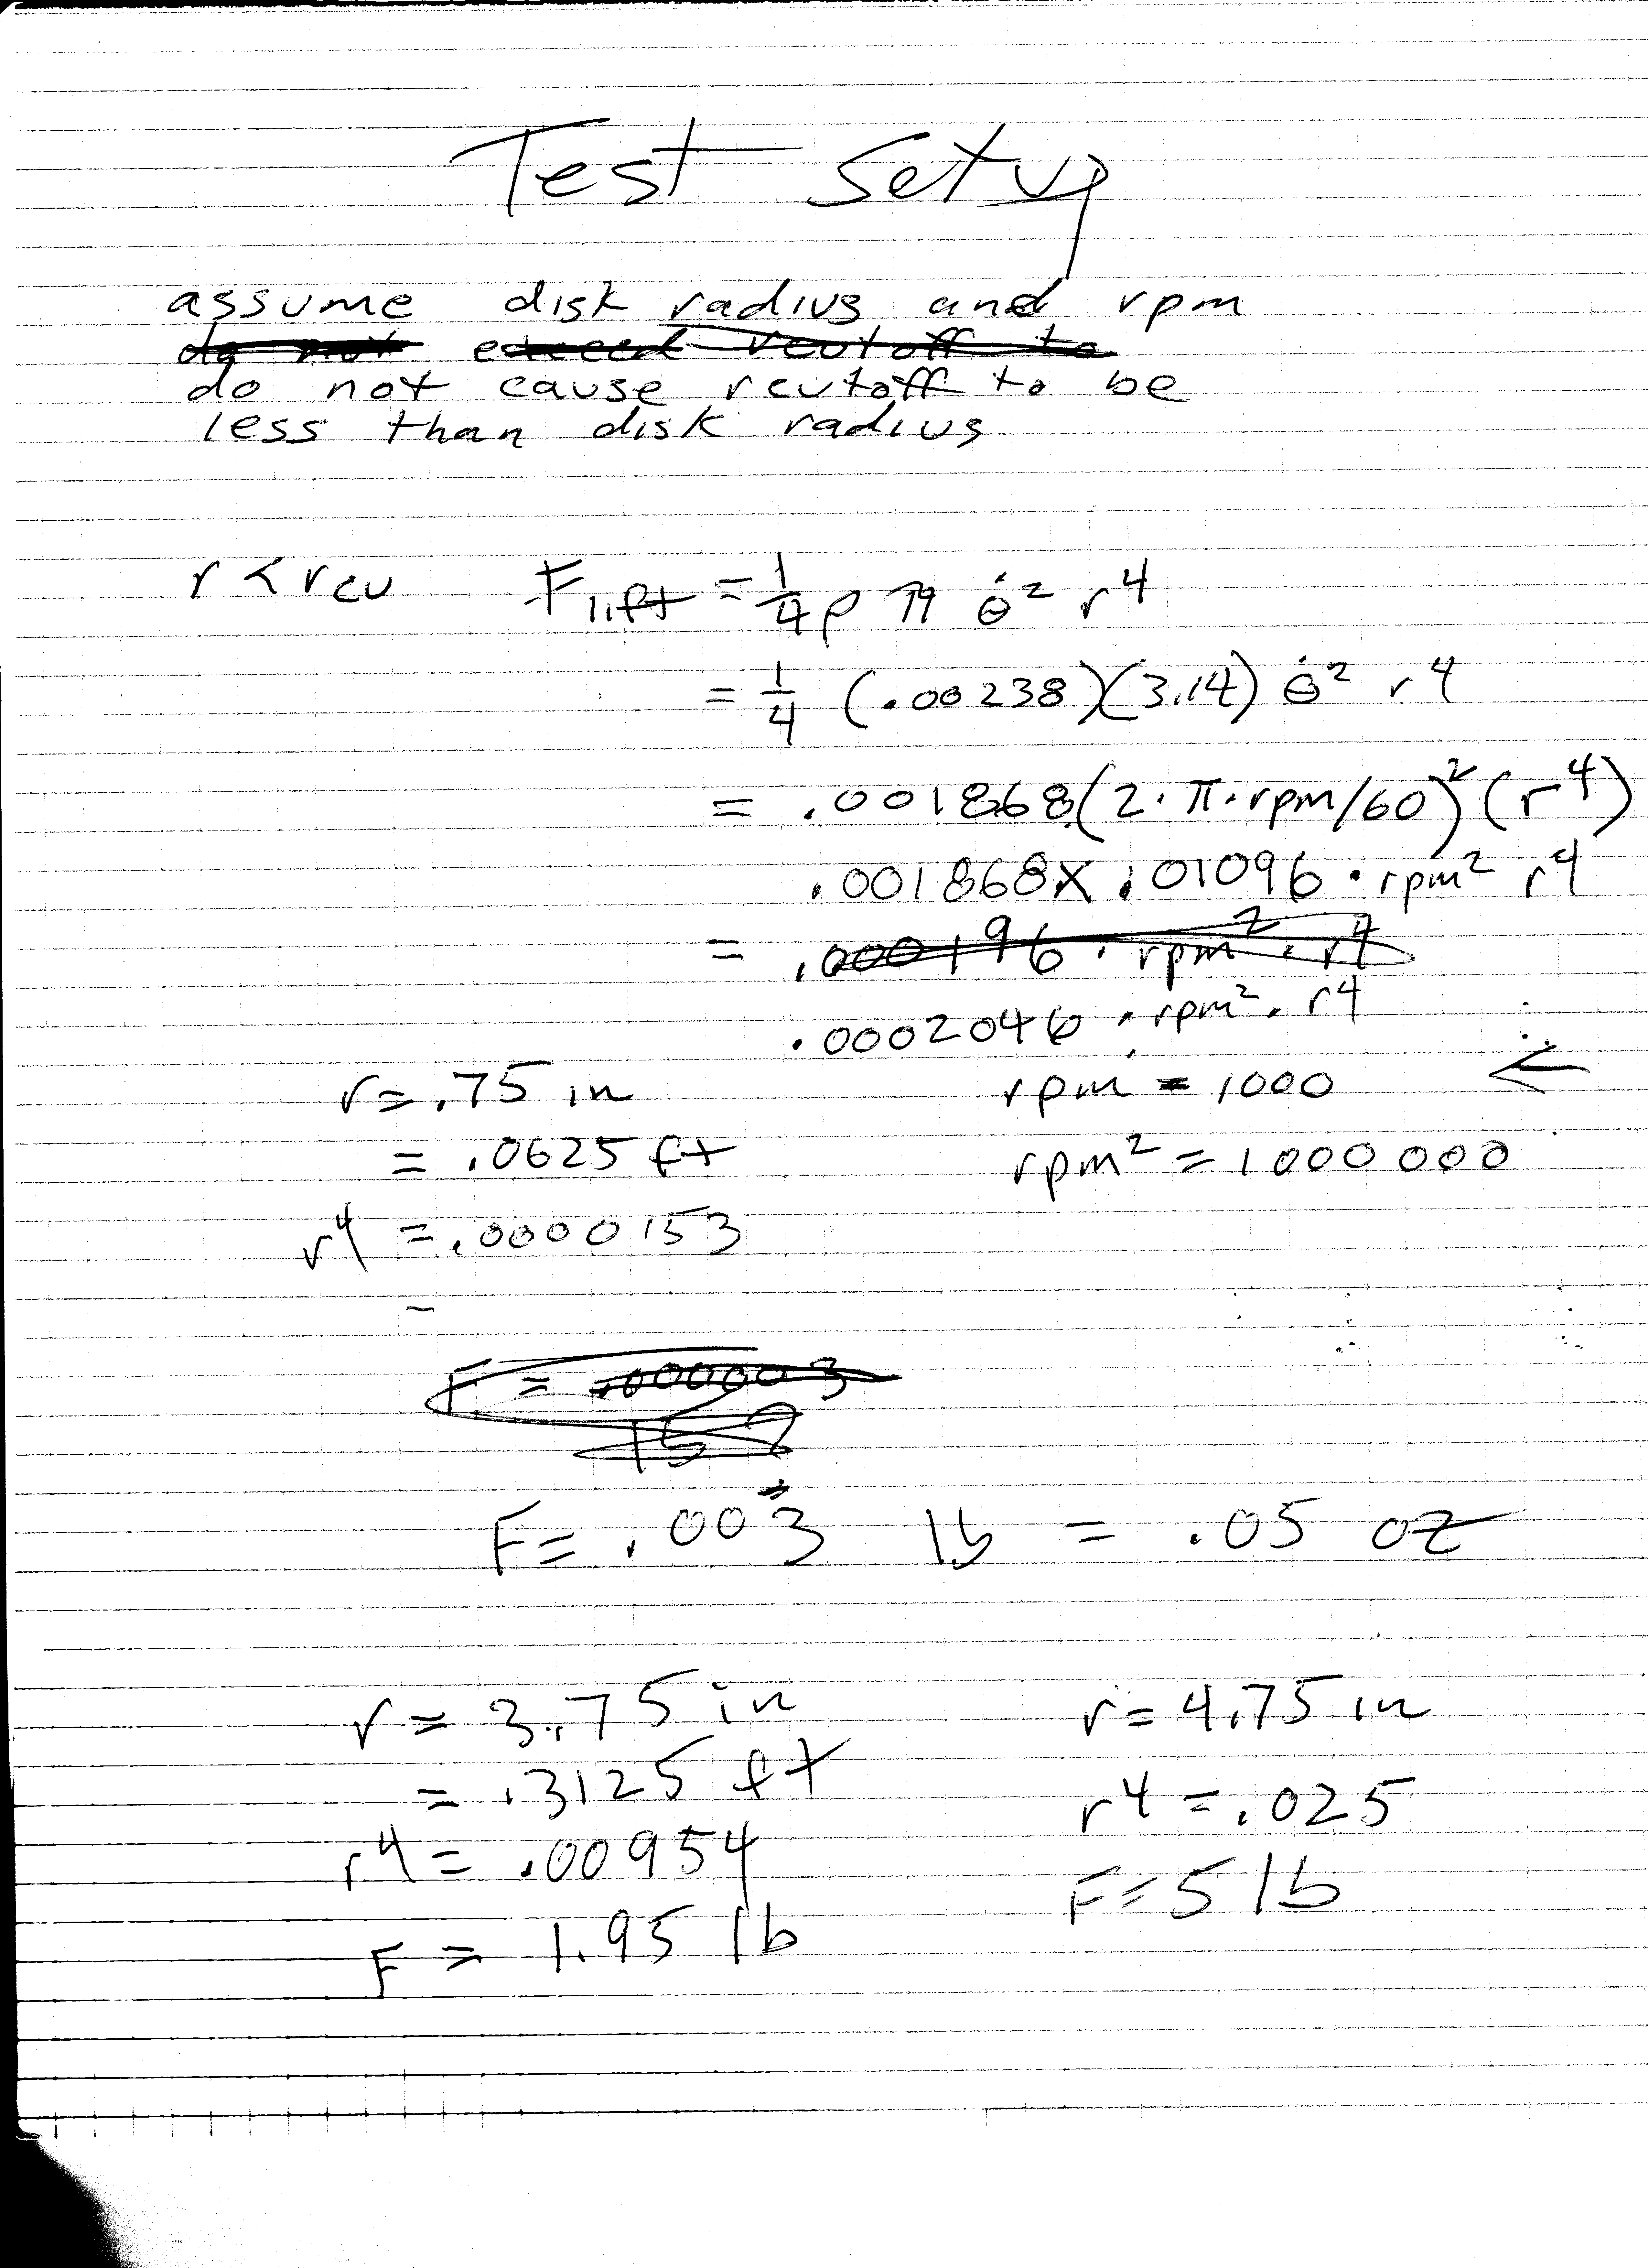 Test Setup
assume disk radius and rpm
do not exceed rcutoff to
do not cause rcutoff to be
less than disk radius
r < rcu F lift = 1/4 ρ π θ̇² r⁴
= 1/4 (.00238)(3.14) θ̇² r⁴
= .001868(2·π·rpm/60)² (r⁴)
.001868 x .01096 · rpm² r⁴
= .000196 · rpm² · r⁴
.0002046 · rpm² · r⁴
r = .75 in rpm = 1000 ←
= .0625 ft rpm² = 1000 000
r⁴ = .0000153
F = .000003
F = .003 lb = .05 oz
r = 3.75 in r = 4.75 in
= .3125 ft r⁴ = .025
r⁴ = .00954 F = 5 lb
F = 1.95 lb